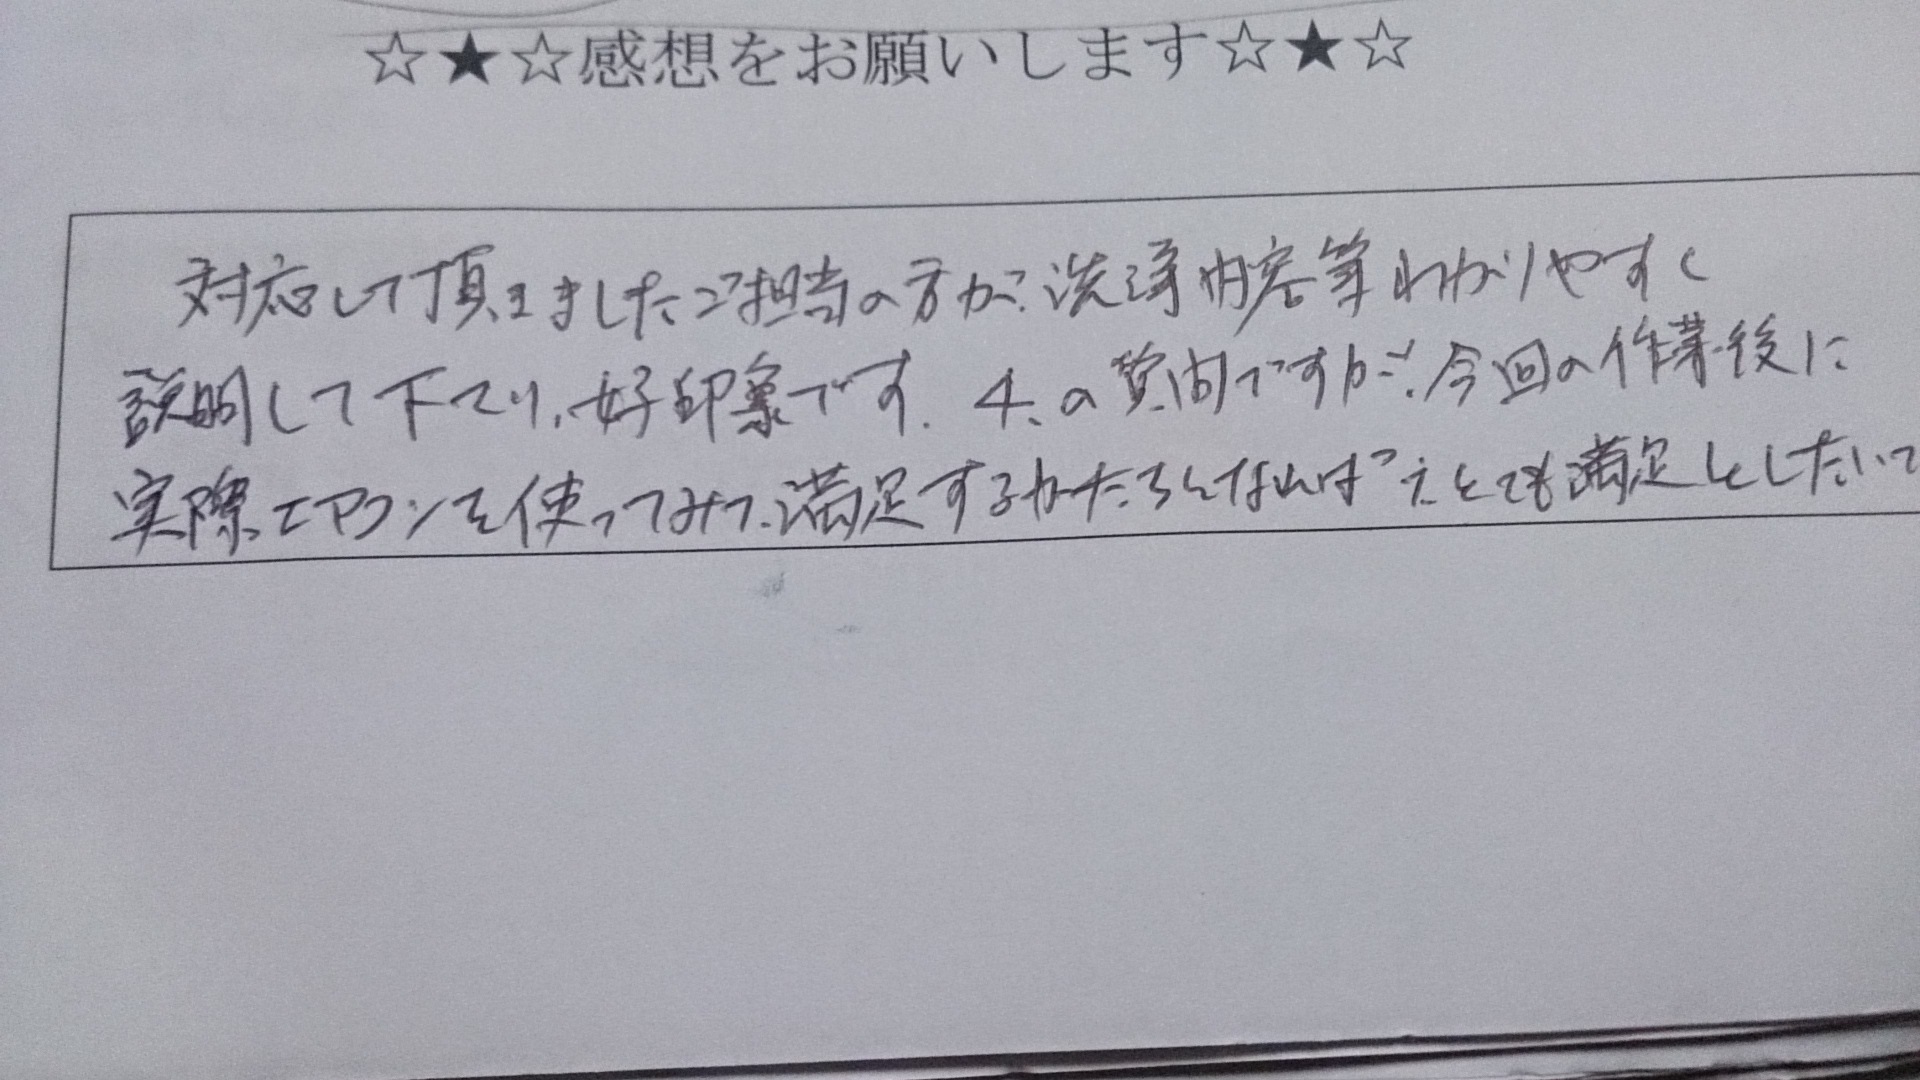 ☆★☆感想をお願いします☆★☆
対応して頂きましたご担当の方が、洗浄内容等わかりやすく
説明して下さり、好印象です。4.の質問ですが、今回の作業後に
実際エアコンを使ってみて、満足するかたちとなれば、とても満足としたいで